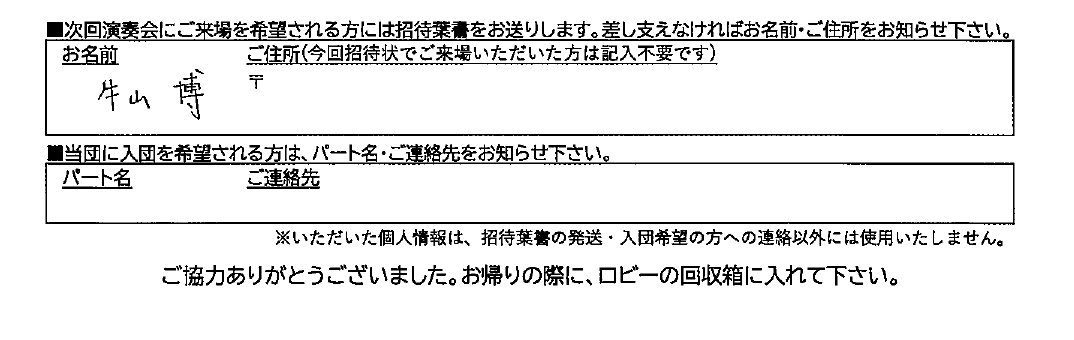 ■次回演奏会にご来場を希望される方には招待葉書をお送りします。差し支えなければお名前・ご住所をお知らせ下さい。
お名前 ご住所(今回招待状でご来場いただいた方は記入不要です)
〒
牛山 博
■当団に入団を希望される方は、パート名・ご連絡先をお知らせ下さい。
パート名 ご連絡先
※いただいた個人情報は、招待葉書の発送・入団希望の方への連絡以外には使用いたしません。
ご協力ありがとうございました。お帰りの際に、ロビーの回収箱に入れて下さい。